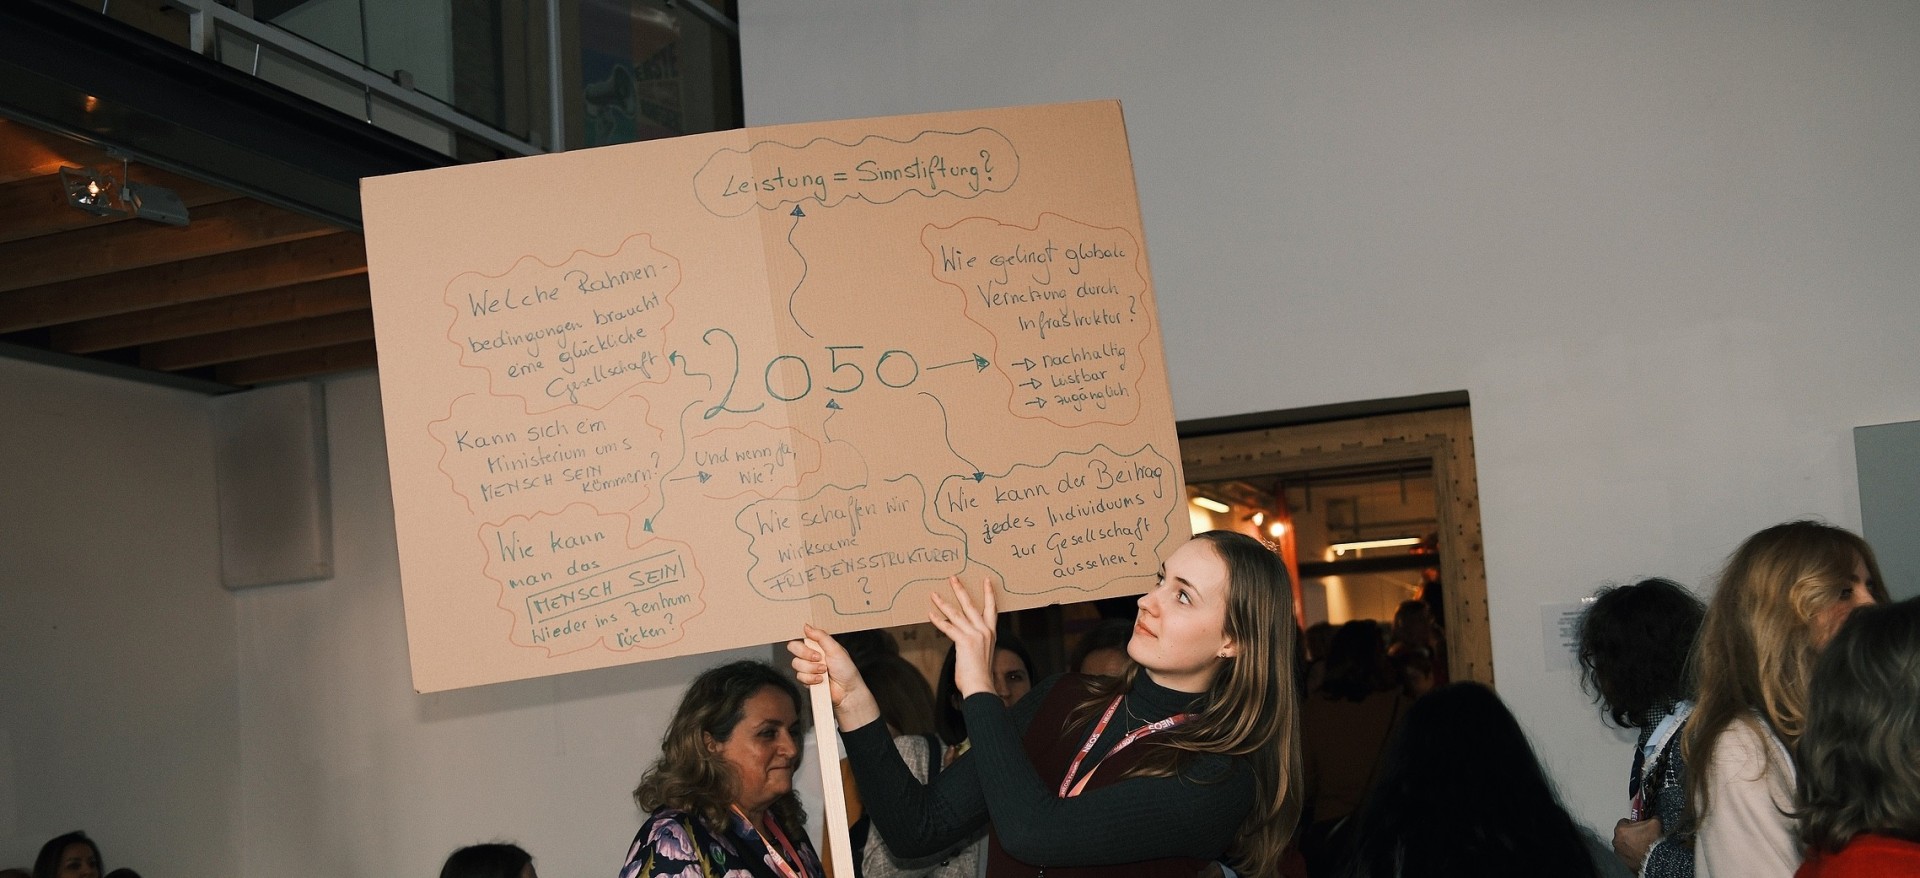 Leistung = Sinnstiftung?
Welche Rahmen-
bedingungen braucht
eine glückliche
Gesellschaft
2050
Wie gelingt globale
Vernetzung durch
Infrastruktur?
→ nachhaltig
→ leistbar
→ zugänglich
Kann sich ein
Ministerium ums
MENSCH SEIN
kümmern?
Und wenn ja,
wie?
Wie kann
man das
MENSCH SEIN
wieder ins Zentrum
rücken?
Wie schaffen wir
wirksame
FRIEDENSSTRUKTUREN
?
Wie kann der Beitrag
jedes Individuums
zur Gesellschaft
aussehen?
NEOS
NEOS